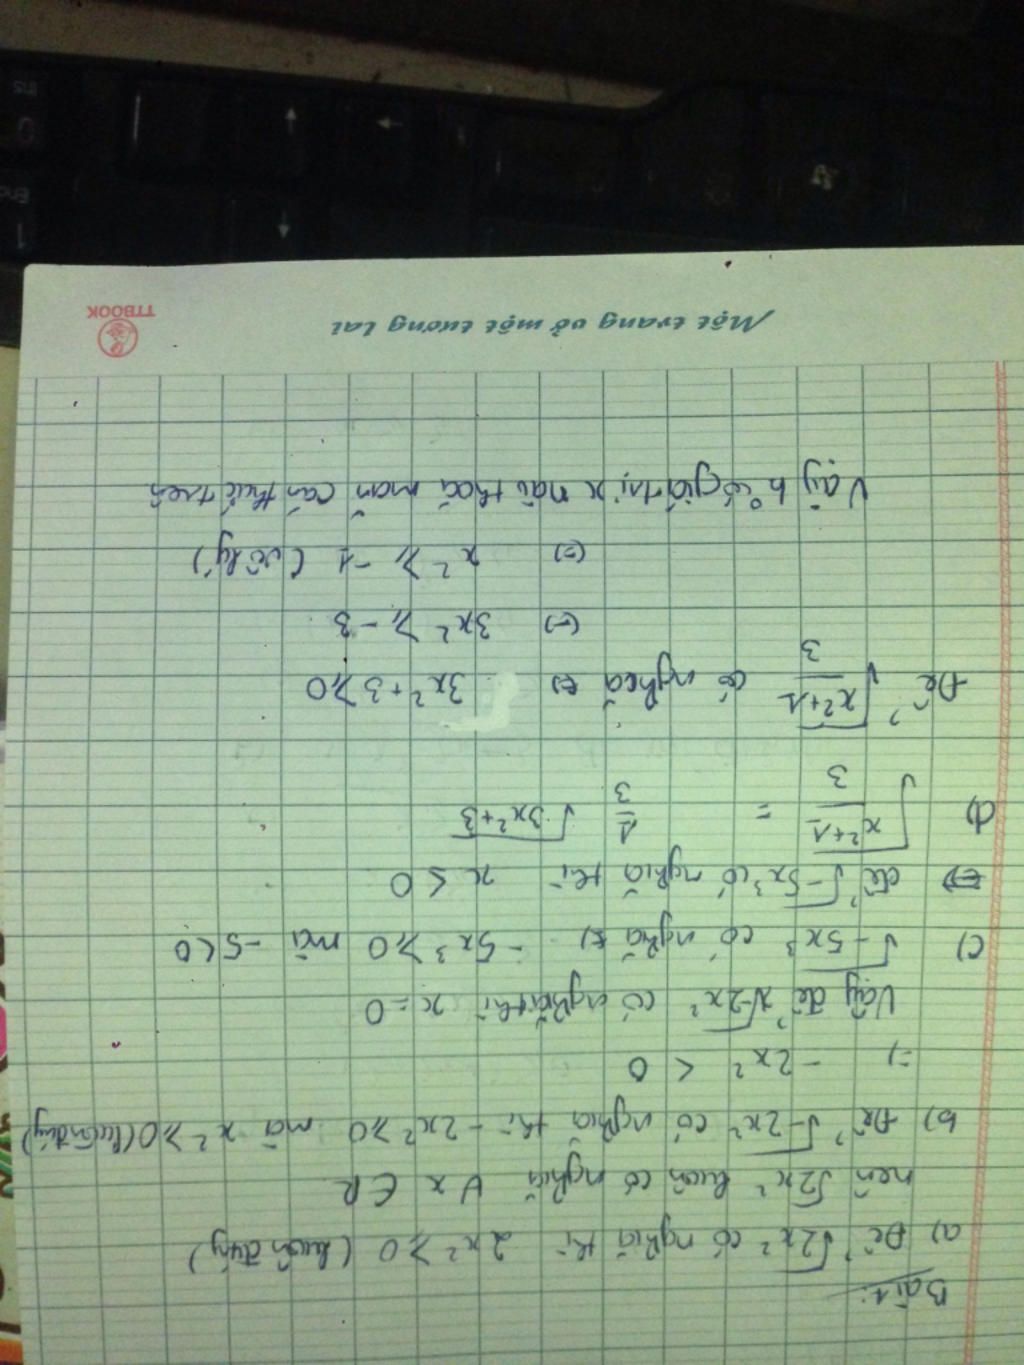 Bài 1:
a) Để √2x² có nghĩa thì 2x² ⩾ 0 (luôn đúng)
nên √2x² luôn có nghĩa ∀ x ∈ R
b) Để √-2x² có nghĩa thì -2x² ⩾ 0 mà x² ⩾ 0 (luôn đúng)
=) -2x² < 0
Vậy để √-2x² có nghĩa thì x = 0
c) √-5x³ có nghĩa (=) -5x³ ⩾ 0 mà -5 < 0
để √-5x³ có nghĩa thì x ≤ 0
d) √(x²+1)/3 = 1/3 √3x²+3
Để √(x²+1)/3 có nghĩa (=) 3x² + 3 ⩾ 0
(=) 3x² ⩾ -3
(=) x² ⩾ -1 (vô lý)
Vậy k có giá trị x nào thoả mãn căn thức trên
Một trang vở một tương lai
TTBOOK